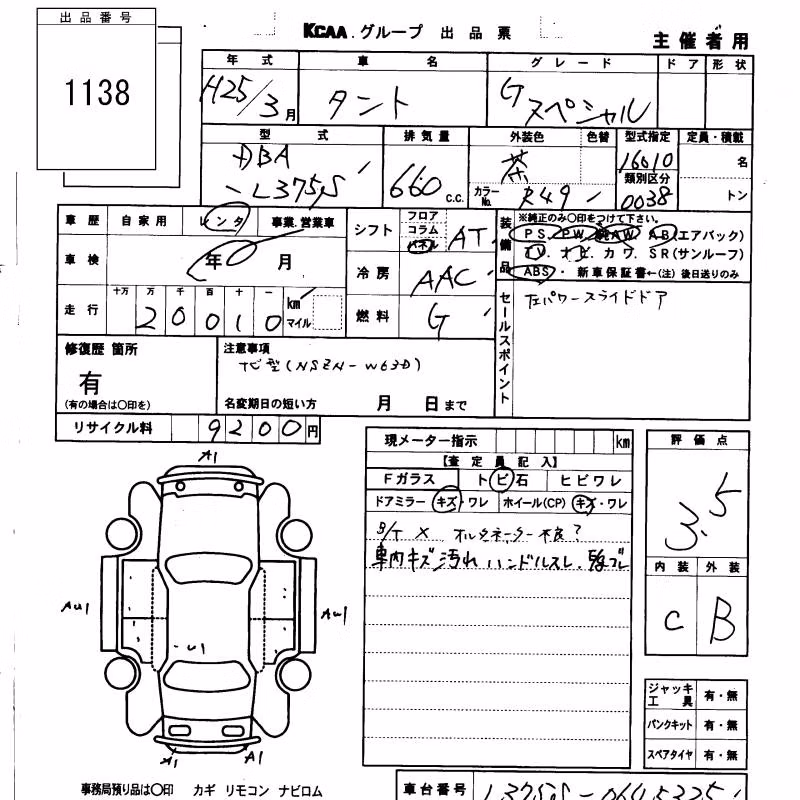 出品番号
1138
KCAA.グループ 出品票
主催者用
年式 車名 グレード ドア 形状
H25/3月 タント G スペシャル
型式 排気量 外装色 色替 型式指定 定員・積載
DBA-L375S 660 c.c. 茶 16010 名
カラーNo. R49 類別区分 0038 トン
車歴 自家用 レンタ 事業.営業車
シフト フロア コラム パネル AT
装備品 ※純正のみ〇印をつけて下さい。
PS. PW. 純AW. AB(エアバック)
TV. ナビ. カワ. SR(サンルーフ)
ABS ・ 新車保証書←(注)後日送りのみ
車検 年 0 月
冷房 AAC
走行 十万 万 千 百 十 一 km マイル
20010
燃料 G
セールスポイント 左パワースライドドア
修復歴 箇所
有
(有の場合は〇印を)
注意事項
ナビ型(NSZN-W63D)
名変期日の短い方 月 日まで
リサイクル料 9200円
現メーター指示 km
【査定員記入】
Fガラス トビ石 ヒビワレ
ドアミラー キズ・ワレ ホイール(CP) キズ・ワレ
B/T × オルタネーター不良?
車内キズ汚れ ハンドルスレ.
評価点
3.5
内装 外装
C B
A1
AU1 AU1
-U1
A1 A1
ジャッキ工具 有・無
パンクキット 有・無
スペアタイヤ 有・無
事務局預り品は〇印 カギ リモコン ナビロム
車台番号 L375S-0645325